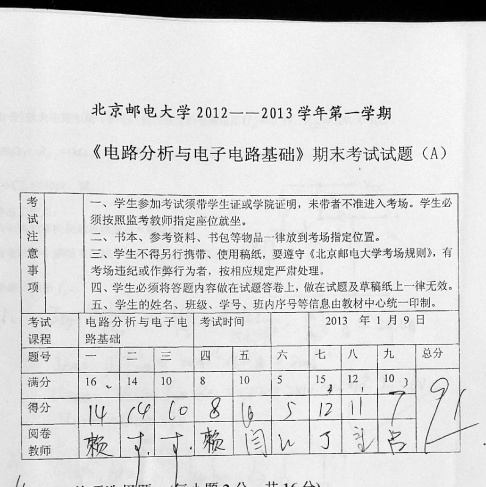 北京邮电大学 2012——2013 学年第一学期
《电路分析与电子电路基础》期末考试试题（A）
考试注意事项
一、学生参加考试须带学生证或学院证明，未带者不准进入考场。学生必
须按照监考教师指定座位就坐。
二、书本、参考资料、书包等物品一律放到考场指定位置。
三、学生不得另行携带、使用稿纸，要遵守《北京邮电大学考场规则》，有
考场违纪或作弊行为者，按相应规定严肃处理。
四、学生必须将答题内容做在试题答卷上，做在试题及草稿纸上一律无效。
五、学生的姓名、班级、学号、班内序号等信息由教材中心统一印制。
考试课程 电路分析与电子电路基础 考试时间 2013 年 1 月 9 日
题号 一 二 三 四 五 六 七 八 九 总分
满分 16 14 10 8 10 5 15 12 10
得分 14 14 10 8 10 5 12 11 7 91
阅卷教师 赖 赖 闫